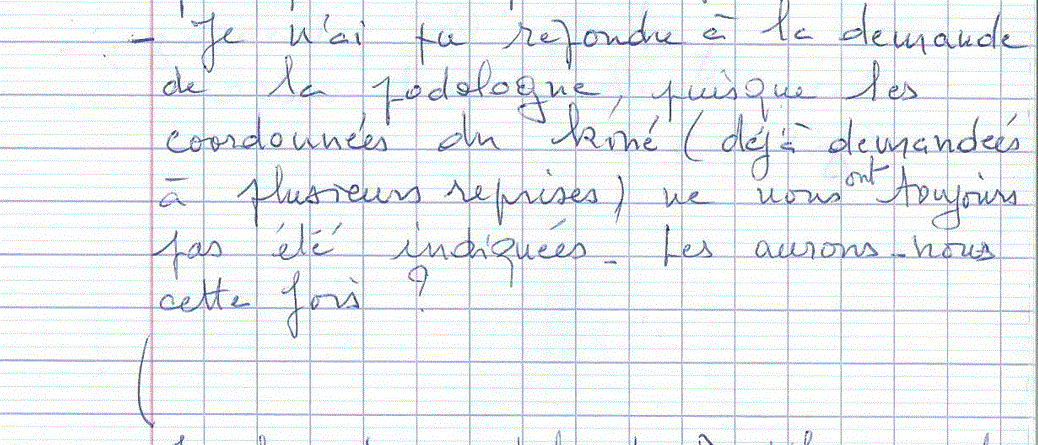 - Je n'ai pu répondre à la demande
de la podologue, puisque les
coordonnées du kiné (déjà demandées
à plusieurs reprises) ne nous ont toujours
pas été indiquées. Les aurons-nous
cette fois ?